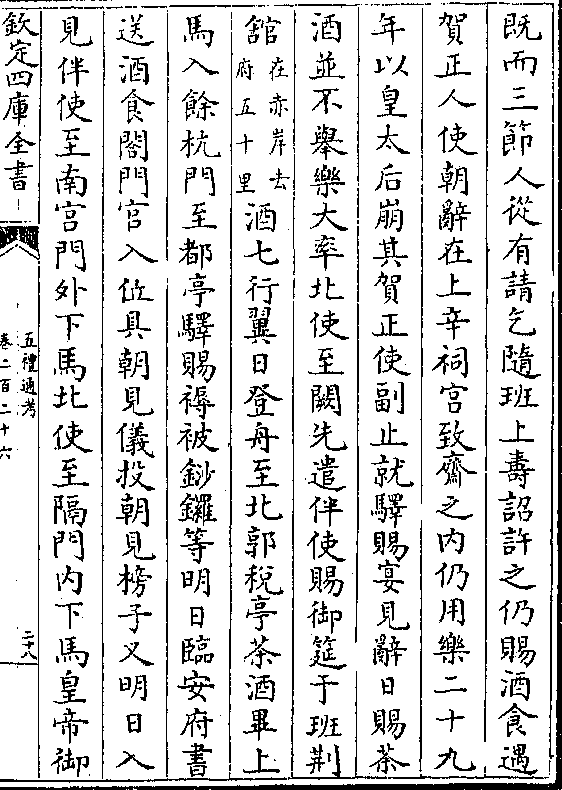 既而三節人從有請乞隨班上壽詔許之仍賜酒食遇
賀正人使朝辭在上辛祠宫致齋之内仍用樂二十九
年以皇太后崩其賀正使副止就驛賜宴見辭日賜茶
酒並不舉樂大率北使至闕先遣伴使賜御筵于班荆
舘在赤岸去府五十里酒七行翼日登舟至北郭税亭茶酒畢上
馬入餘杭門至都亭驛賜褥被鈔鑼等明日臨安府書
送酒食閤門官入位具朝見儀投朝見榜子又明日入
見伴使至南宫門外下馬北使至隔門内下馬皇帝御
欽定四庫全書
五禮通考
卷二百二十六
二十八